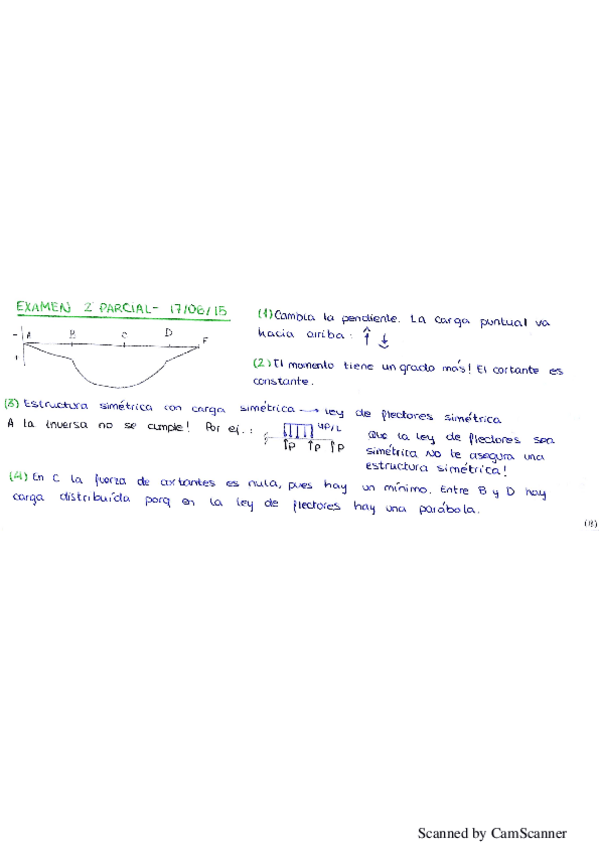 EXAMEN 2º PARCIAL - 17/06/15
(1) Cambia la pendiente. La carga puntual va
hacia arriba:
- A B C D F
+
(2) El momento tiene un grado más! El cortante es
constante.
(3) Estructura simétrica con carga simétrica → ley de flectores simétrica
A la inversa no se cumple! Por ej.: 4P/L
P P P
Que la ley de flectores sea
simétrica NO le asegura una
estructura simétrica!
(4) En C la fuerza de cortantes es nula, pues hay un mínimo. Entre B y D hay
carga distribuída porq en la ley de flectores hay una parábola.
Scanned by CamScanner